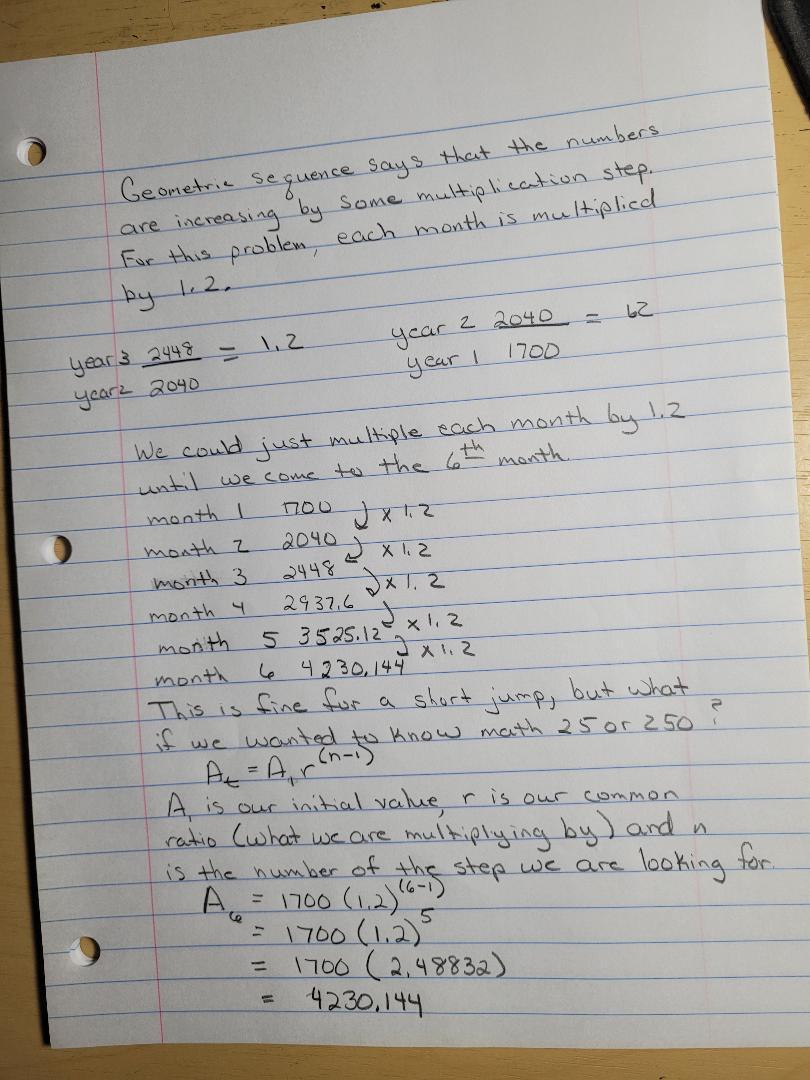 Geometric sequence says that the numbers
are increasing by some multiplication step.
For this problem, each month is multiplied
by 1.2.
year 3 2448 = 1.2 year 2 2040 = 1.2
year 2 2040 year 1 1700
We could just multiple each month by 1.2
until we come to the 6th month
month 1 1700 x 1.2
month 2 2040 x 1.2
month 3 2448 x 1.2
month 4 2937.6 x 1.2
month 5 3525.12 x 1.2
month 6 4230.144
This is fine for a short jump, but what
if we wanted to know math 25 or 250?
At = A1 r^(n-1)
A1 is our initial value, r is our common
ratio (what we are multiplying by) and n
is the number of the step we are looking for.
A6 = 1700 (1.2)^(6-1)
= 1700 (1.2)^5
= 1700 (2.48832)
= 4230.144